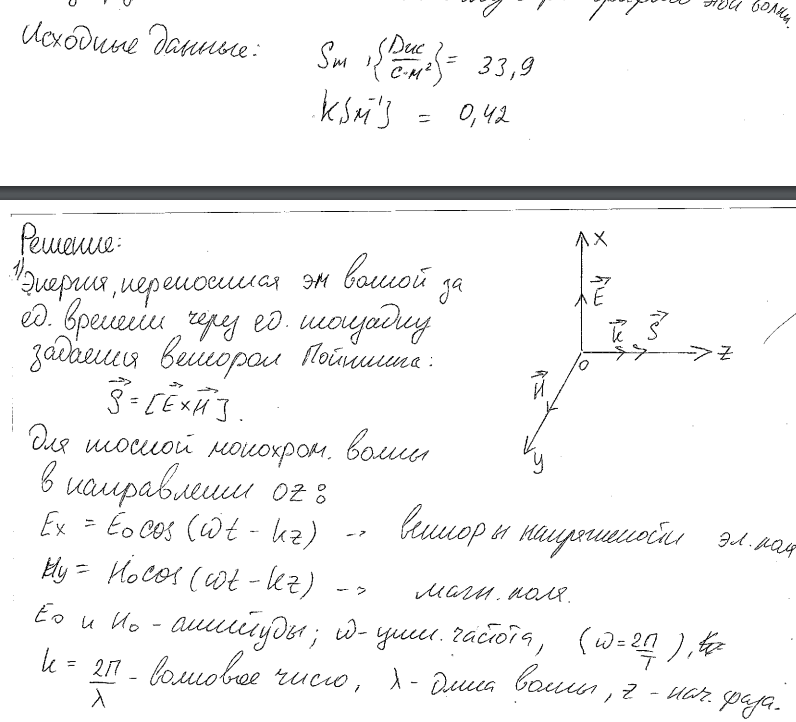 этой волны.
Исходные данные:
Sm, {Дж/с·м²} = 33,9
k{м⁻¹} = 0,42
Решение:
1) Энергия, переносимая эм волной за
ед. времени через ед. площадку
задается вектором Пойнтинга:
S⃗ = [E⃗×H⃗].
Для плоской монохром. волны
в направлении OZ:
Ex = E₀cos(ωt - kz) -> векторы напряженности эл. поля
Hy = H₀cos(ωt - kz) -> магн. поля.
E₀ и H₀ - амплитуды; ω - цикл. частота, (ω = 2π/T),
k = 2π/λ - волновое число, λ - длина волны, z - нач. фаза.
X
E⃗
k⃗ S⃗
Z
O
H⃗
y